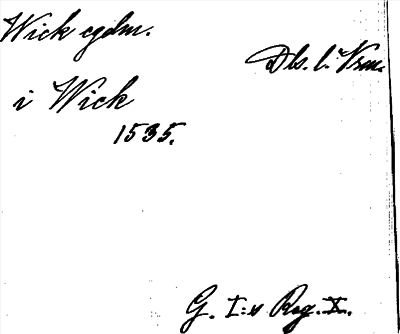 Wick egdm.
Dls. l. Vrm.
i Wick
1535.
G. I:s Reg. X.